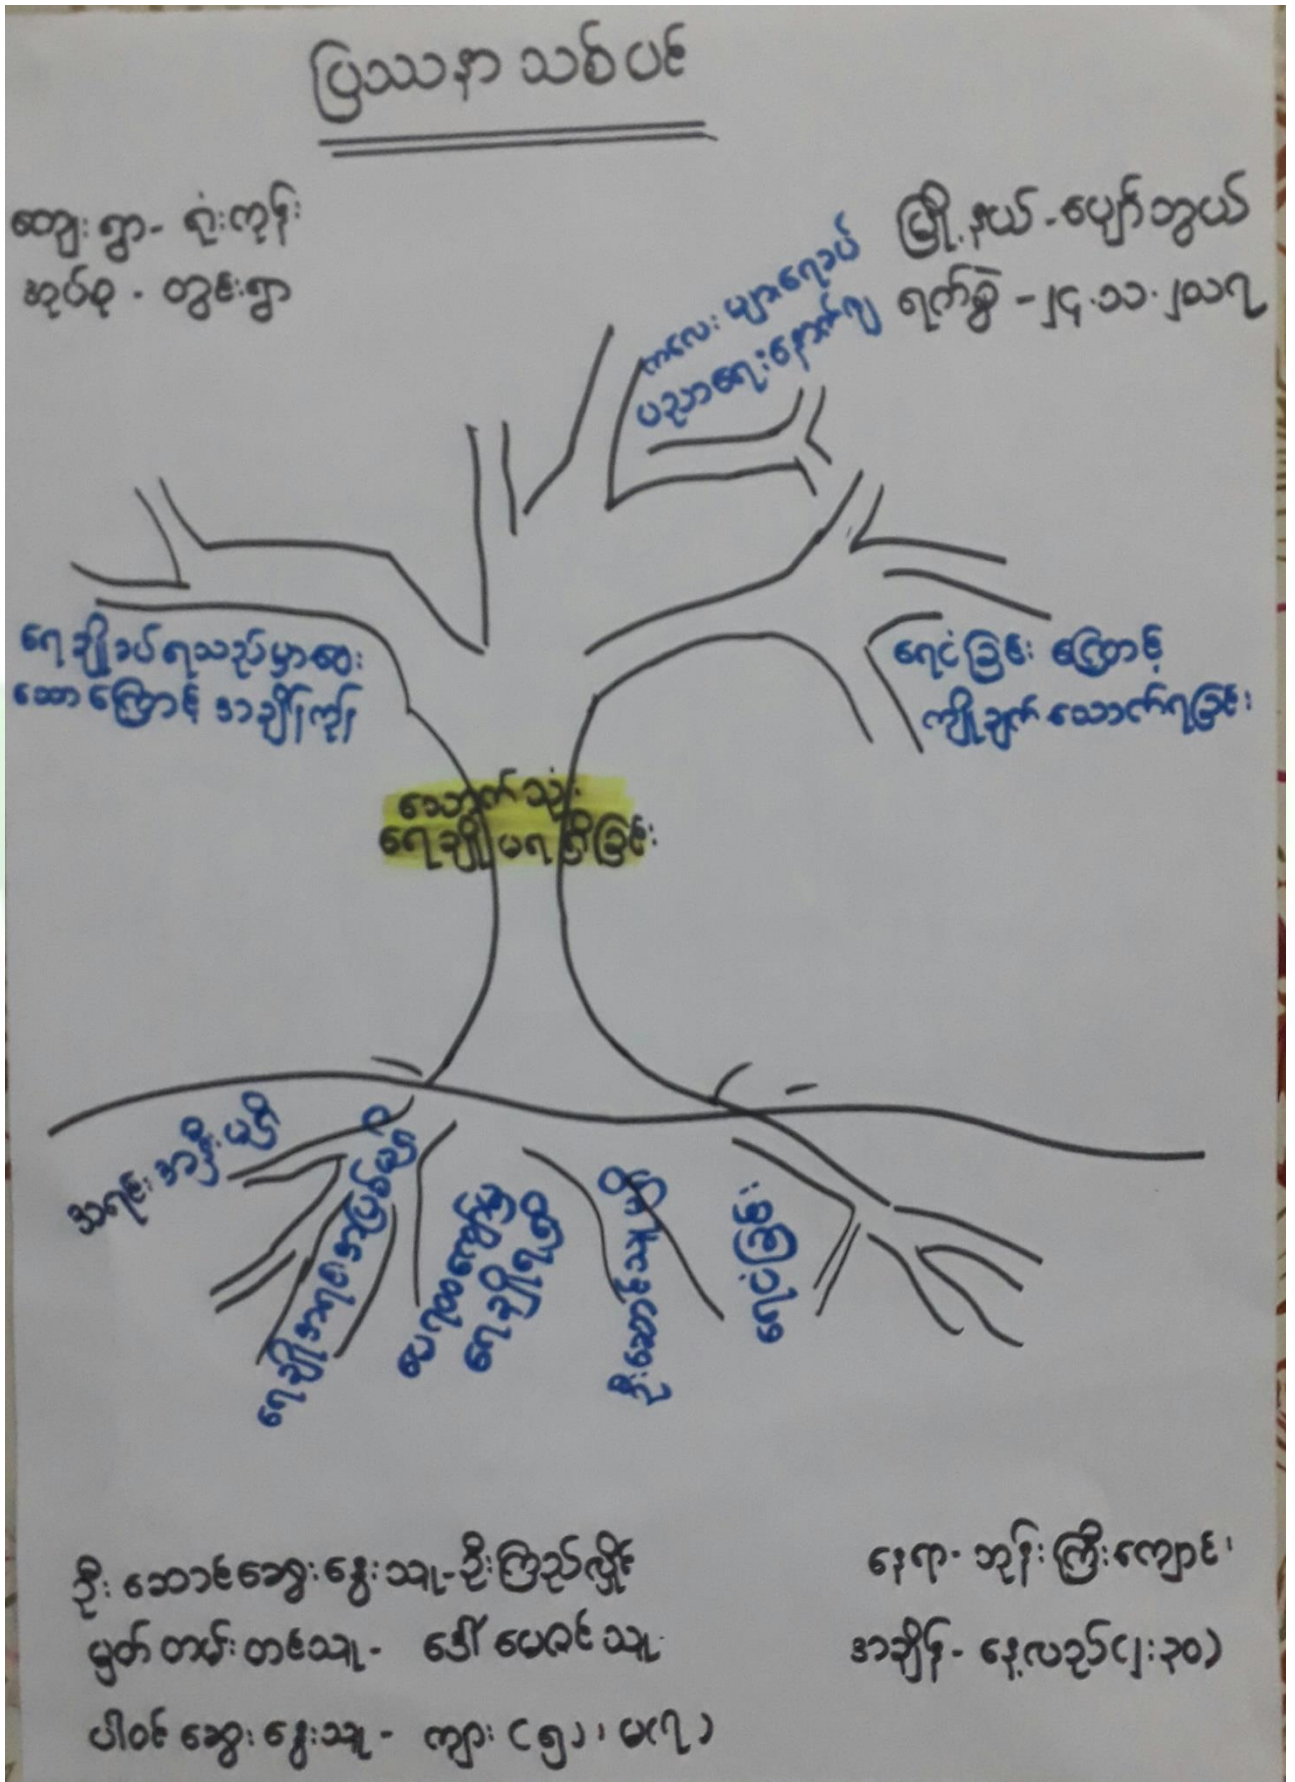 ပြဿနာ သစ်ပင်
ကျေးရွာ - ရုံးကုန်း
အုပ်စု - တွင်းရွာ
မြို့နယ် - ပျော်ဘွယ်
ရက်စွဲ - ၂၄.၁၁.၂၀၁၇
ကလေးများရေခပ်
ပညာရေးနောက်ကျ
ရေချိုခပ်ရသည်မှာဝေး
သောကြောင့် အချိန်ကုန်
ရေငံခြင်း ကြောင့်
ကျိုချက်သောက်ရခြင်း
သောက်သုံး
ရေချို မရရှိခြင်း
အရင်းအနှီးမရှိ
ရေချိုအရအမြစ်မရှိ
ရေချိုရရှိ
ဦးဆောင်သူမရှိ
ရေငံခြင်း
ဦးဆောင်ဆွေးနွေးသူ - ဦးကြည်လှိုင်
မှတ်တမ်းတင်သူ - ဒေါ်မေဇင်သူ
ပါဝင်ဆွေးနွေးသူ - ကျား (၅)၊ မ(၇)
နေရာ - ဘုန်းကြီးကျောင်း
အချိန် - နေ့လည်(၂:၃၀)